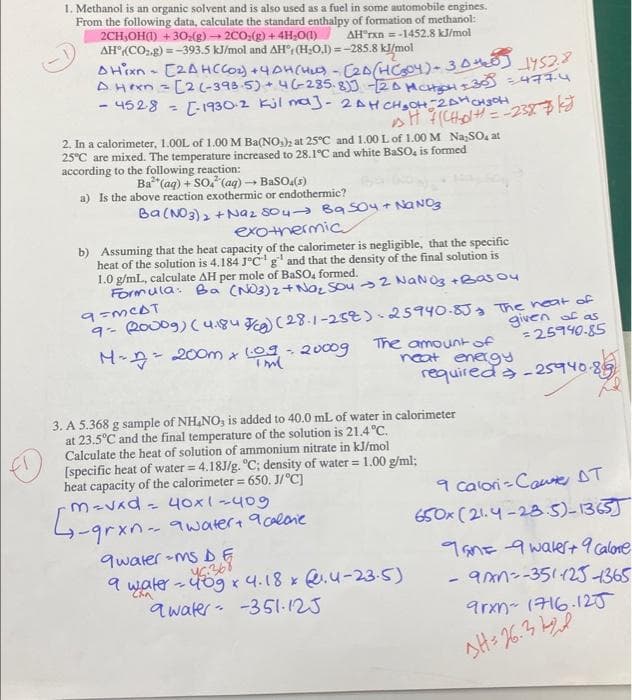 1. Methanol is an organic solvent and is also used as a fuel in some automobile engines.
From the following data, calculate the standard enthalpy of formation of methanol:
2CH₃OH(l) + 3O₂(g) → 2CO₂(g) + 4H₂O(l) ΔH°rxn = -1452.8 kJ/mol
ΔH°f(CO₂,g) = –393.5 kJ/mol and ΔH°f(H₂O,l) = –285.8 kJ/mol
-1
1452.8
ΔHrxn = [2(-393.5) + 4(-285.8)]
= 477.4
- 452.8 = [-1930.2 KJ/mol] - 2ΔH CH3OH
= -238.7 kJ
2. In a calorimeter, 1.00L of 1.00 M Ba(NO₃)₂ at 25°C and 1.00 L of 1.00 M Na₂SO₄ at
25°C are mixed. The temperature increased to 28.1°C and white BaSO₄ is formed
according to the following reaction:
Ba²⁺(aq) + SO₄²⁻(aq) → BaSO₄(s)
a) Is the above reaction exothermic or endothermic?
Ba(NO3)2 + Na2SO4 → BaSO4 + NaNO3
exothermic
b) Assuming that the heat capacity of the calorimeter is negligible, that the specific
heat of the solution is 4.184 J°C⁻¹ g⁻¹ and that the density of the final solution is
1.0 g/mL, calculate ΔH per mole of BaSO₄ formed.
Formula: Ba(NO3)2 + Na2SO4 → 2NaNO3 + BaSO4
q = mcΔT
q = (2000g) (4.184 J/cg) (28.1-25) = 25940.8J → The heat of
given of as
= 25940.85
M = n/v = 200m x 1.0g/1ml = 2000g
The amount of
heat energy
required → -25940.8
3. A 5.368 g sample of NH₄NO₃ is added to 40.0 mL of water in calorimeter
at 23.5°C and the final temperature of the solution is 21.4°C.
Calculate the heat of solution of ammonium nitrate in kJ/mol
[specific heat of water = 4.18J/g. °C; density of water = 1.00 g/ml;
heat capacity of the calorimeter = 650. J/°C]
-1
m = vxd = 40x1 = 40g
-qrxn = qwater + qcalorie
qwater = ms ΔE
45.368
q water = 40g x 4.18 x (21.4-23.5)
qwater = -351.12J
q calori = ΔT
650x(21.4-23.5) = -1365J
= -qwater + qcalore
-qrxn = -351.12J -1365
qrxn = 1716.12J
ΔH = 26.3